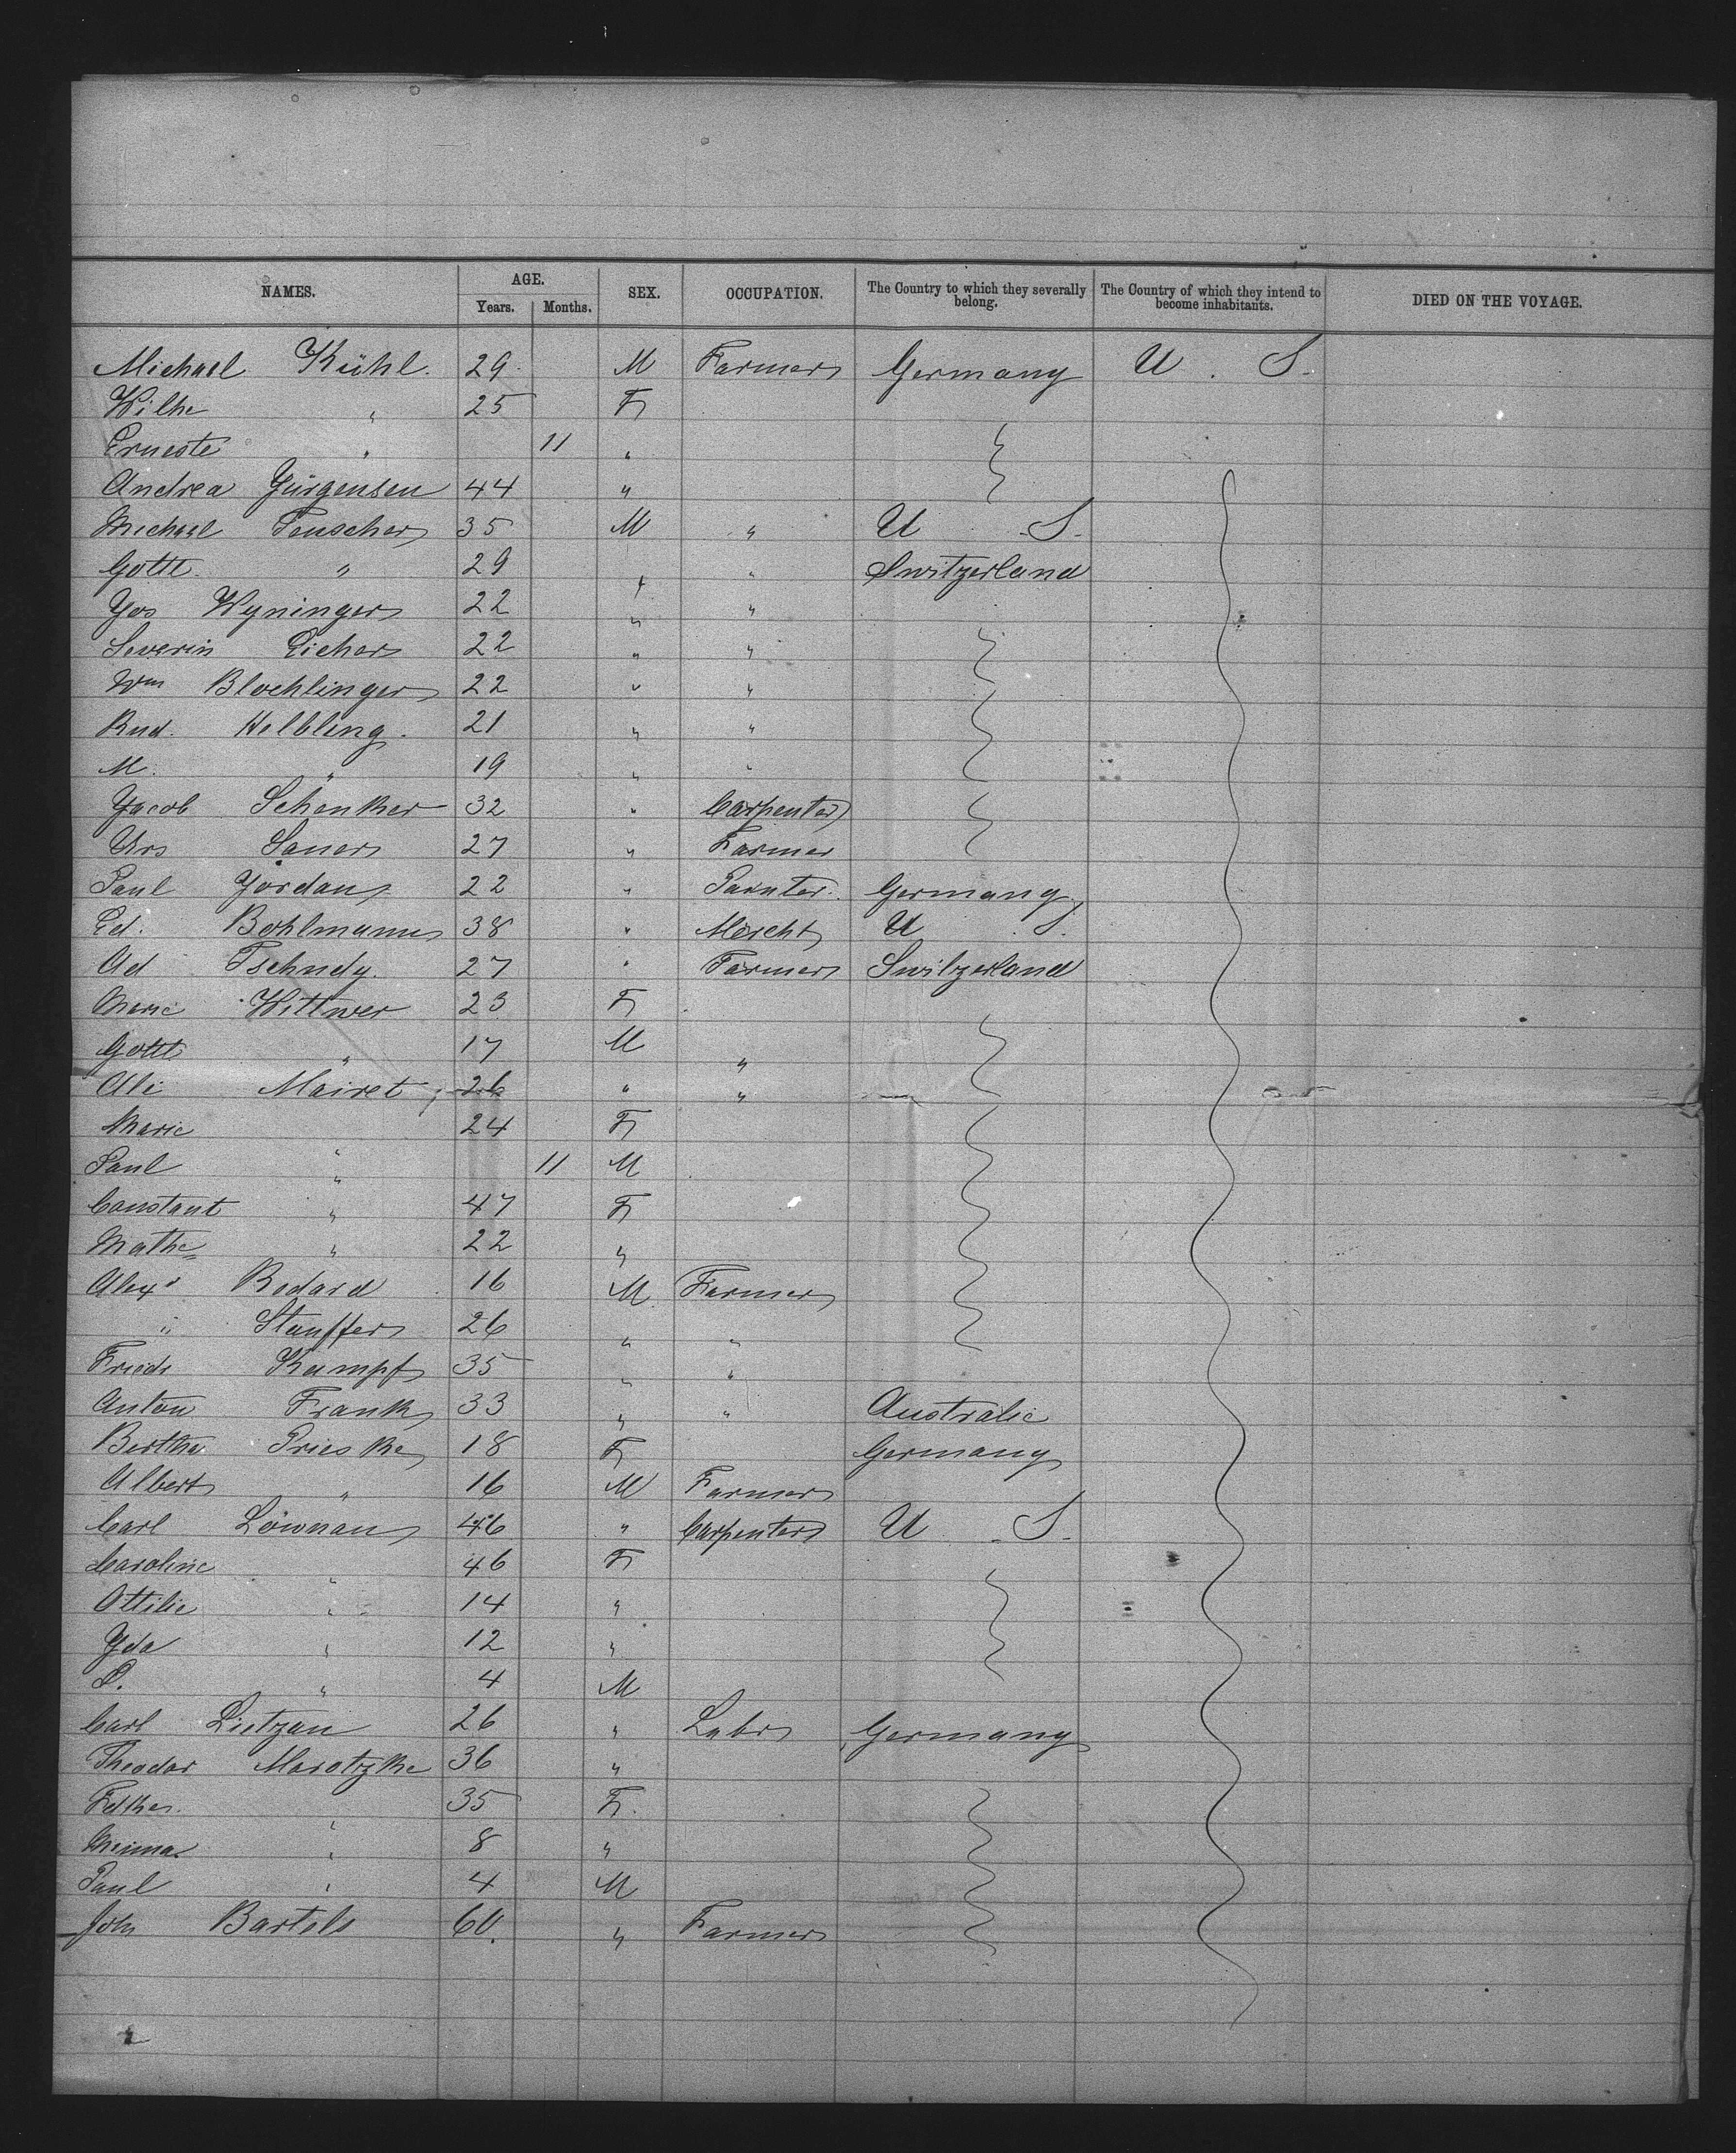 NAMES. AGE. SEX. OCCUPATION. The Country to which they severally belong. The Country of which they intend to become inhabitants. DIED ON THE VOYAGE.
Years. Months.
Michael Kühl. 29 M Farmer Germany U. S.
Wilhe " 25 F
Erneste " 11 "
Andrea Jürgensen 44 "
Michael Teuscher 35 M " U. S.
Gottl. " 29 " " Switzerland
Jos Wyninger 22 " "
Severin Eicher 22 " "
Wm Blochlinger 22 " "
Rud. Helbling. 21 " "
M. " 19 " "
Jacob Schenker 32 " Carpenter
Urs Saner 27 " Farmer
Paul Jordan 22 " Painter. Germany
Ed. Bohlmann 38 " Mercht U. S.
Ad Tschudy. 27 " Farmer Switzerland
Marie Wittwer 23 F
Gottl " 17 M "
Ali Mairet 26 " "
Marie " 24 F
Paul " 11 M
Constant " 47 F
Mathe " 22 "
Alexr Rodard 16 M Farmer
" Stauffer 26 " "
Friedr Kumpf 35 " "
Anton Frank 33 " " Australie
Bertha Prieske 18 F Germany
Albert " 16 M Farmer
Carl Löwnau 46 " Carpenter U. S.
Caroline " 46 F
Ottilie " 14 "
Ida " 12 "
" 4 M
Carl Lietzau 26 " Labr Germany
Theodor Marotzke 36 "
" 35 F.
Minna " 8 "
Paul " 4 M
John Bartels 60. " Farmer